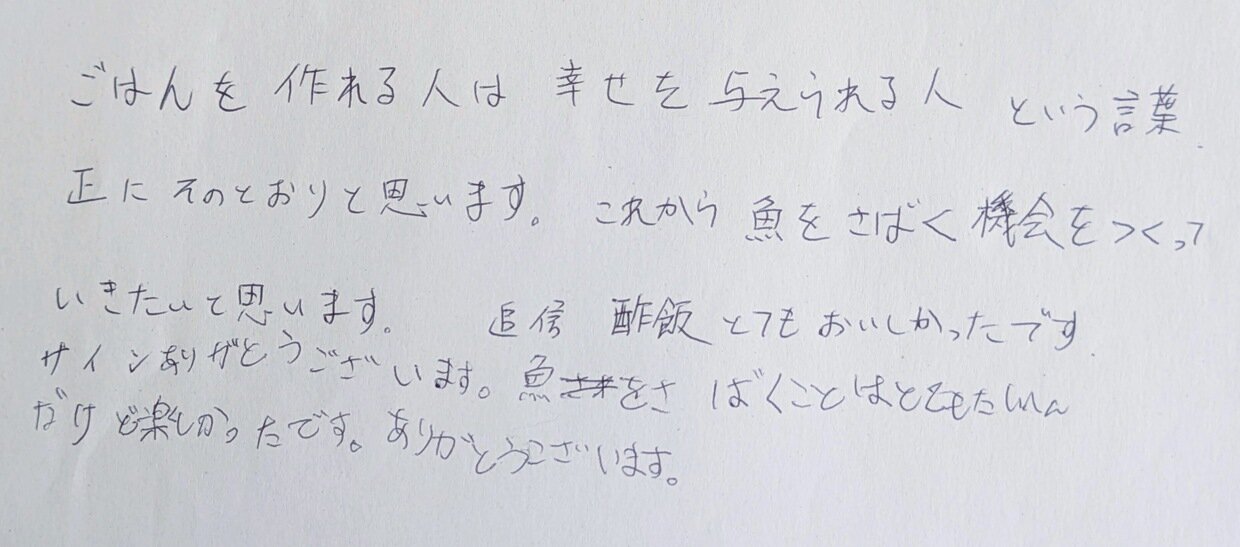 ごはんを 作れる人は 幸せを 与えられる人 という言葉
正に そのとおりと思います。 これから 魚を さばく 機会を つくって
いきたいと思います。 追信 酢飯 とてもおいしかったです
サインありがとうございます。魚をさばくことはとてもたいへん
だけど楽しかったです。ありがとうございます。